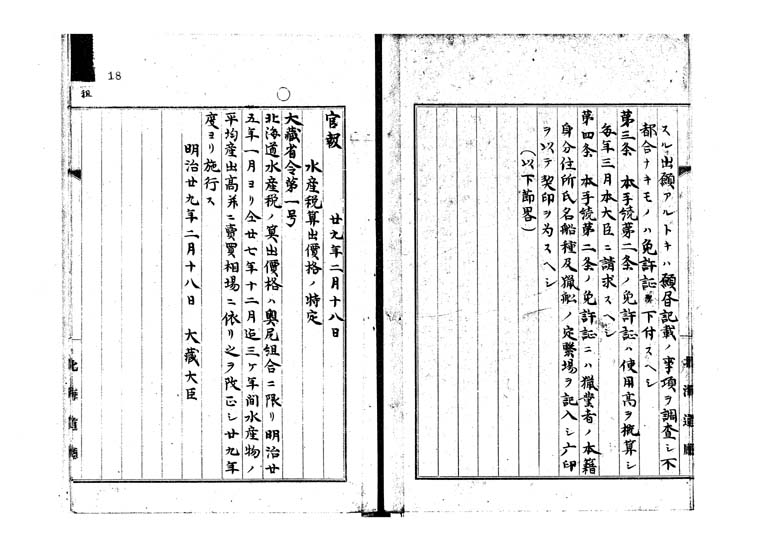 スル出願アルトキハ願届記載ノ事項ヲ調査シ不
都合ナキモノハ免許証下付スヘシ
第三条　本手続第二条ノ免許証ハ使用高ヲ概算シ
毎年三月本大臣ニ請求スヘシ
第四条　本手続第二条ノ免許証ニハ猟業者ノ本籍
身分住所氏名船種及猟船ノ定繋場ヲ記入シ六印
ヲ以テ契印ヲ為スヘシ
（以下節略）
北海道庁
18
官報　廿九年二月十八日
水産税算出價格ノ特定
大藏省令第一号
北海道水産税ノ算出價格ハ奥尻組合ニ限リ明治廿
五年一月ヨリ仝廿七年十二月迄三ヶ年間水産物ノ
平均産出高并ニ賣買相場ニ依リ之ヲ改正シ廿九年
度ヨリ施行ス
明治廿九年二月十八日　大藏大臣
北海道庁